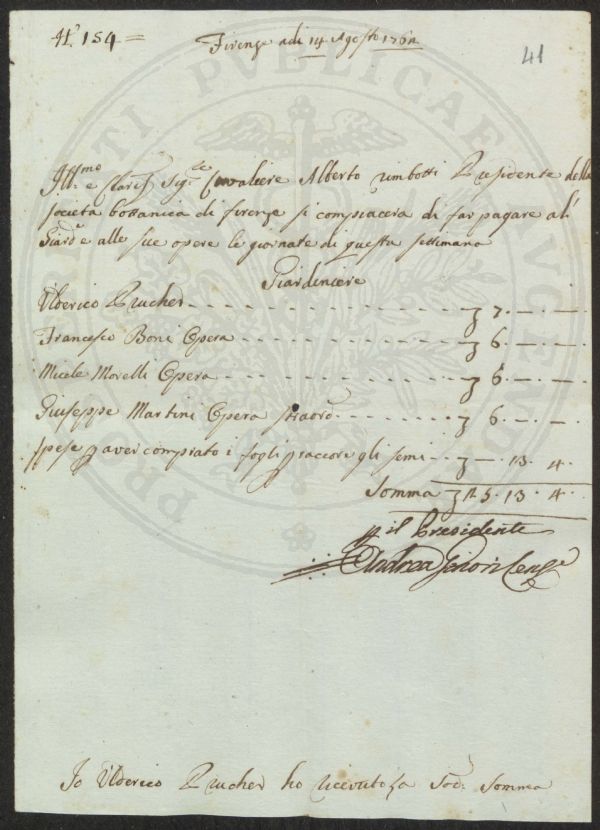 N° 154 =
Firenze adi 14 Agosto 1762
41
Ill:mo e Clariss Sig:re Cavaliere Alberto rimbotti Presidente della
società botanica di firenze si compiacerà di far pagare al
Giard:e e alle sue opere le giornate di questa settimana
Giardiniere
Ulderico Prucher - - - - - - - - - - - 7. — . —
Francesco Boni Opera - - - - - - - - - 6. — . —
Micele Morelli Opera - - - - - - - - - 6. — . —
Giuseppe Martini Opera straord: - - - - - 6. — . —
spese p aver comprato i fogli p raccore gli semi - - — . 13. 4.
Somma 25. 13. 4.
p il Presidente
Andrea Ginori
Io Ulderico Prucher ho ricevuto la Sod: Somma
PROSPERITATI PVBLICAE AVGENDAE